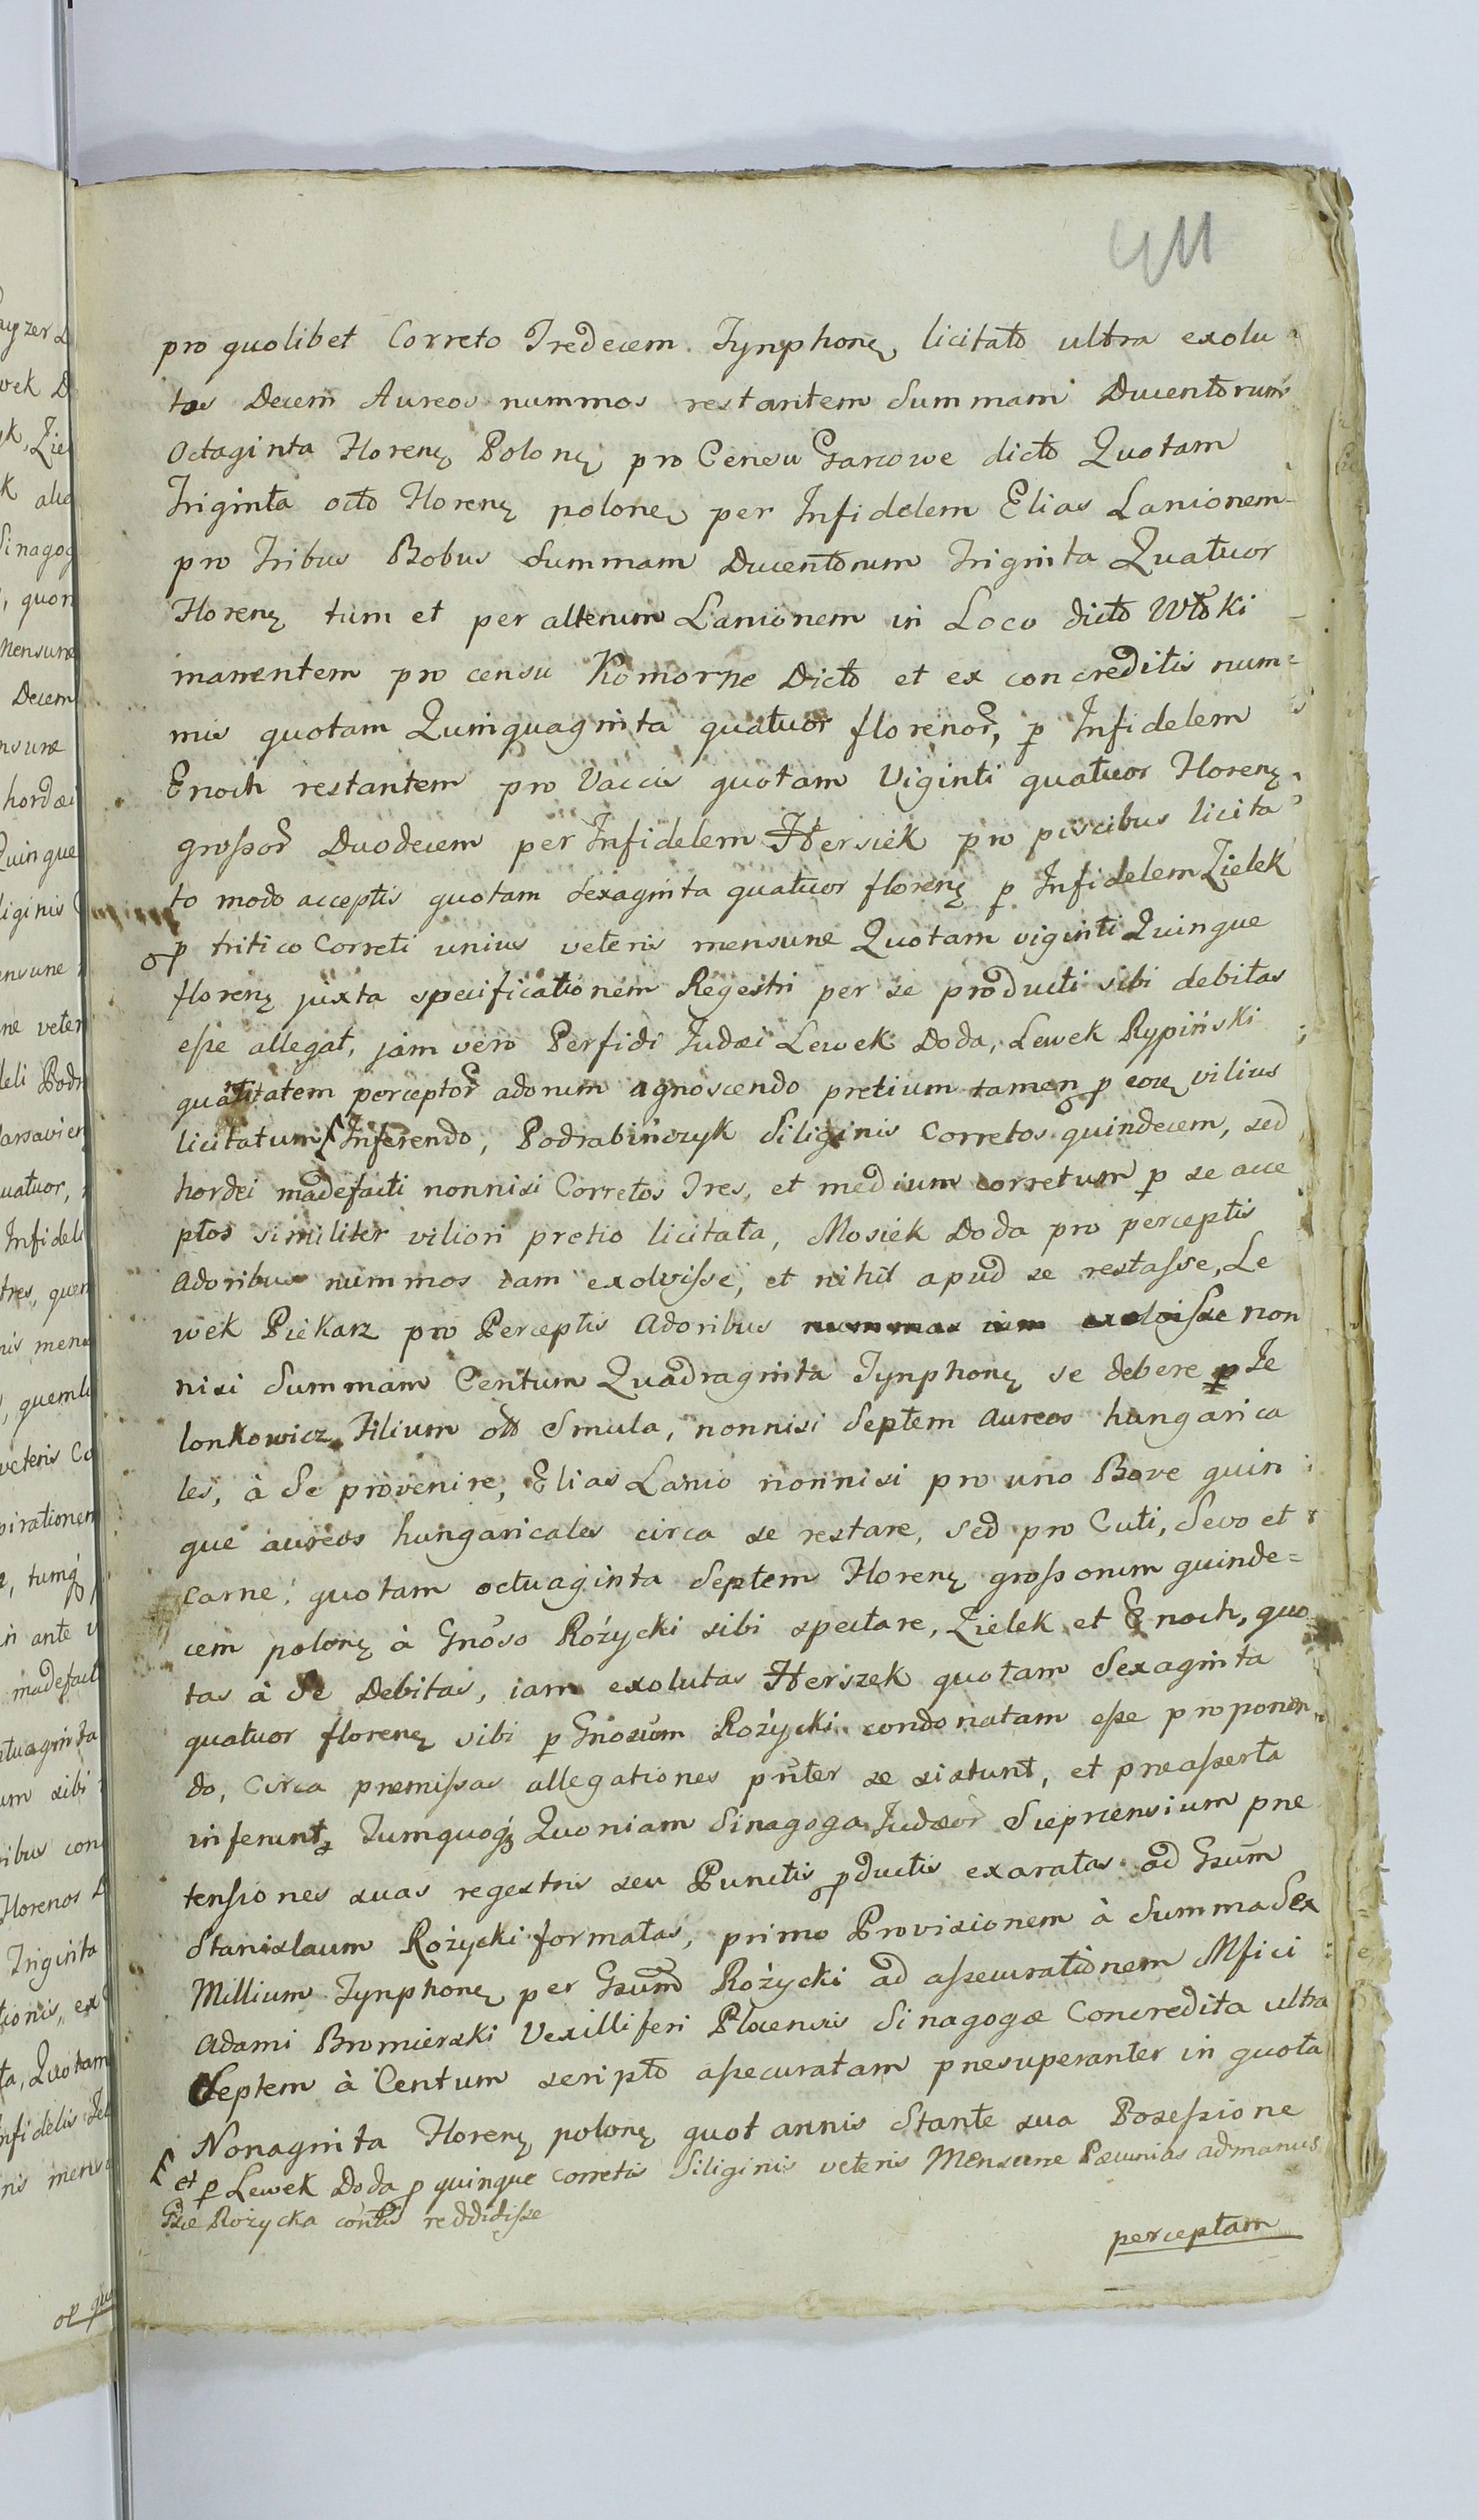 411
pro quolibet Correto Tredecem Tynphonę licitato ultra exolu
tos Decem Aureos nummos restantem Summam Ducentorum
Octaginta Florenę Polonę pro Censu Garcowe dicto Quotam
Triginta octo Florenę polonę per Infidelem Elias Lanionem
pro Tribus Bobus Summam Ducentorum Triginta Quatuor
Florenę tum et per alterum Lanionem in Loco dicto Wtoki
manentem pro censu Komorne Dicto et ex concreditis num=
mis quotam Quinquaginta quatuor florenor, p Infidelem
Enoch restantem pro Vaccis quotam Viginti quatuor Florenę
grossor Duodecem per Infidelem Hersiek pro piscibus licita
to modo acceptis quotam Sexaginta quatuor florenę p Infidelem Zielek
p tritico Correti unius veteris mensuræ Quotam viginti Quinque
florenę juxta specificationem Regestri per se producti sibi debitas
esse allegat, jam vero Perfidi Judæi Lewek Doda, Lewek Rypiński
quātitatem perceptor adorum agnoscendo pretium tamen p eorę vilius
licitatum Inferendo, Podrabińczyk Siliginis Corretos quindecem, sed
hordei madefacti nonnisi Corretos Tres, et medium corretum p se acce
ptos similiter viliori pretio licitata, Mosiek Doda pro perceptis
Adoribus nummos iam exolvisse, et nihil apud se restasse, Le
wek Piekarz pro Perceptis Adoribus nummos iam exolvisse non
nisi Summam Centum Quadraginta Tynphonę se debere p Je
lonkowicz Filium olo Smula, nonnisi Septem Aureos hungarica
les, à Se provenire, Elias Lanio nonnisi pro uno Bove quin
que aureos hungaricales circa se restare, sed pro Cuti, Sevo et
carne, quotam octuaginta Septem Florenę grossorum quinde=
cem polonę à Gnoso Rożycki sibi spectare, Zielek et Enoch, quo
tas à Se Debitas, iam exolutas Herszek quotam Sexaginta
quatuor florenę sibi p Gnosum Rożycki condonatam esse proponen
do, Circa præmissas allegationes pnter se sistunt, et præasserta
inferunt, Tumquoqꝫ Quoniam Sinagoga Judæor Sieprcensium præ
tensiones suas regestris seu Punctis pductis exaratas ad Gsum
Stanislaum Rożycki formatas, primo Provisionem à Summa Sex
Millium Tynphonę per Gsum Rożycki ad assecurationem Mfici
Adami Bromierski Vexilliferi Plocensis Sinagogæ Concredita ultra
Septem à Centum scripto assecuratam præsuperanter in quota
Nonaginta Florenę polonę quot annis Stante sua Possessione
et p Lewek Doda p quinque corretis Siliginis veteris Mensuræ Pæcunias ad manus
Gsæ Rożycka reddidisse
perceptam